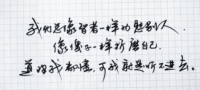 我们总像智者一样劝慰别人
像傻子一样折磨自己
道理我都懂,可我就是听不进去。